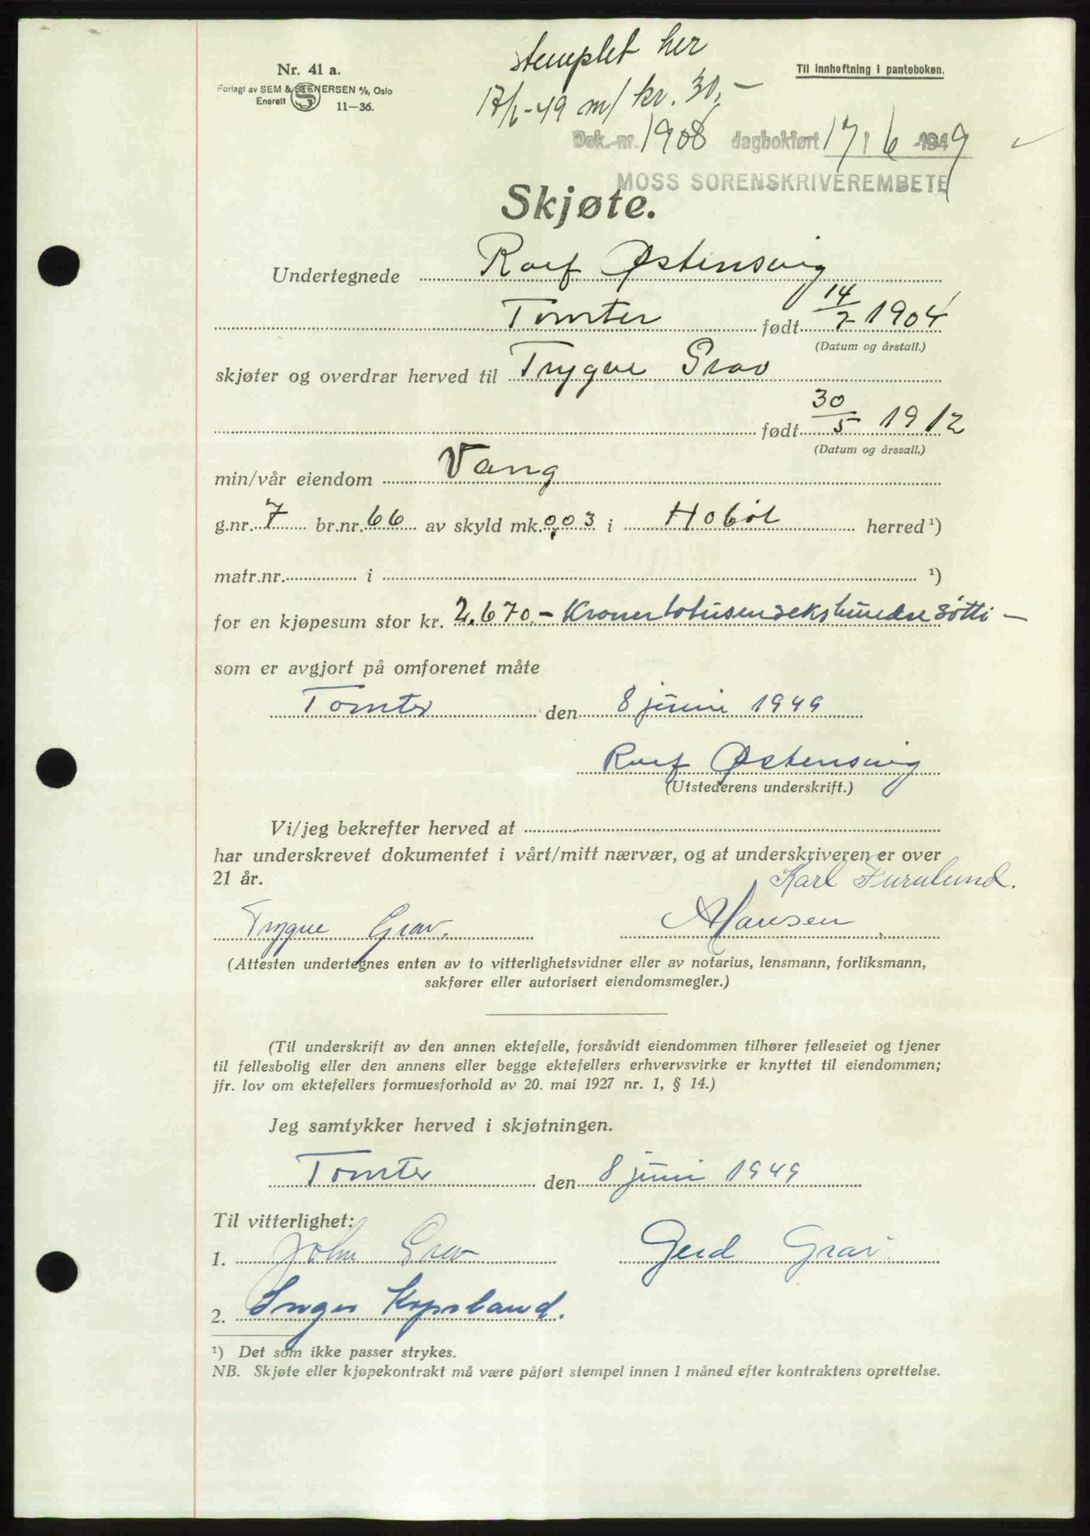 stemplet her
Nr. 41 a.
Til innheftning i panteboken.
Forlagt av SEM & STENERSEN A/S, Oslo
Enerett 11—36.
17/6-49 m/ kr. 30,-
Dok.-nr. 1908 dagbokført 17/6 1949
MOSS SORENSKRIVEREMBETE
Skjøte.
Undertegnede Rolf Østensvig
Tomter født 14/7 1904
(Datum og årstall.)
skjøter og overdrar herved til Trygve Grav
født 30/5 1912
(Datum og årssall.)
min/vår eiendom Vang
g.nr. 7 br.nr. 66 av skyld mk. 0,03 i Hobøl herred ¹)
matr.nr. i ¹)
for en kjøpesum stor kr. 2.670.- Kroner totusensekshundre søtti —
som er avgjort på omforenet måte
Tomter den 8 juni 1949
Rolf Østensvig
(Utstederens underskrift.)
Vi/jeg bekrefter herved at
har underskrevet dokumentet i vårt/mitt nærvær, og at underskriveren er over
21 år. Karl Furulund.
Trygve Grav. A Hansen
(Attesten undertegnes enten av to vitterlighetsvidner eller av notarius, lensmann, forliksmann,
sakfører eller autorisert eiendomsmegler.)
(Til underskrift av den annen ektefelle, forsåvidt eiendommen tilhører felleseiet og tjener
til fellesbolig eller den annens eller begge ektefellers erhvervsvirke er knyttet til eiendommen;
jfr. lov om ektefellers formuesforhold av 20. mai 1927 nr. 1, § 14.)
Jeg samtykker herved i skjøtningen.
Tomter den 8 juni 1949
Til vitterlighet:
1. John Grav Gerd Grav
2. Inger Kopsland.
¹) Det som ikke passer strykes.
NB. Skjøte eller kjøpekontrakt må være påført stempel innen 1 måned efter kontraktens oprettelse.